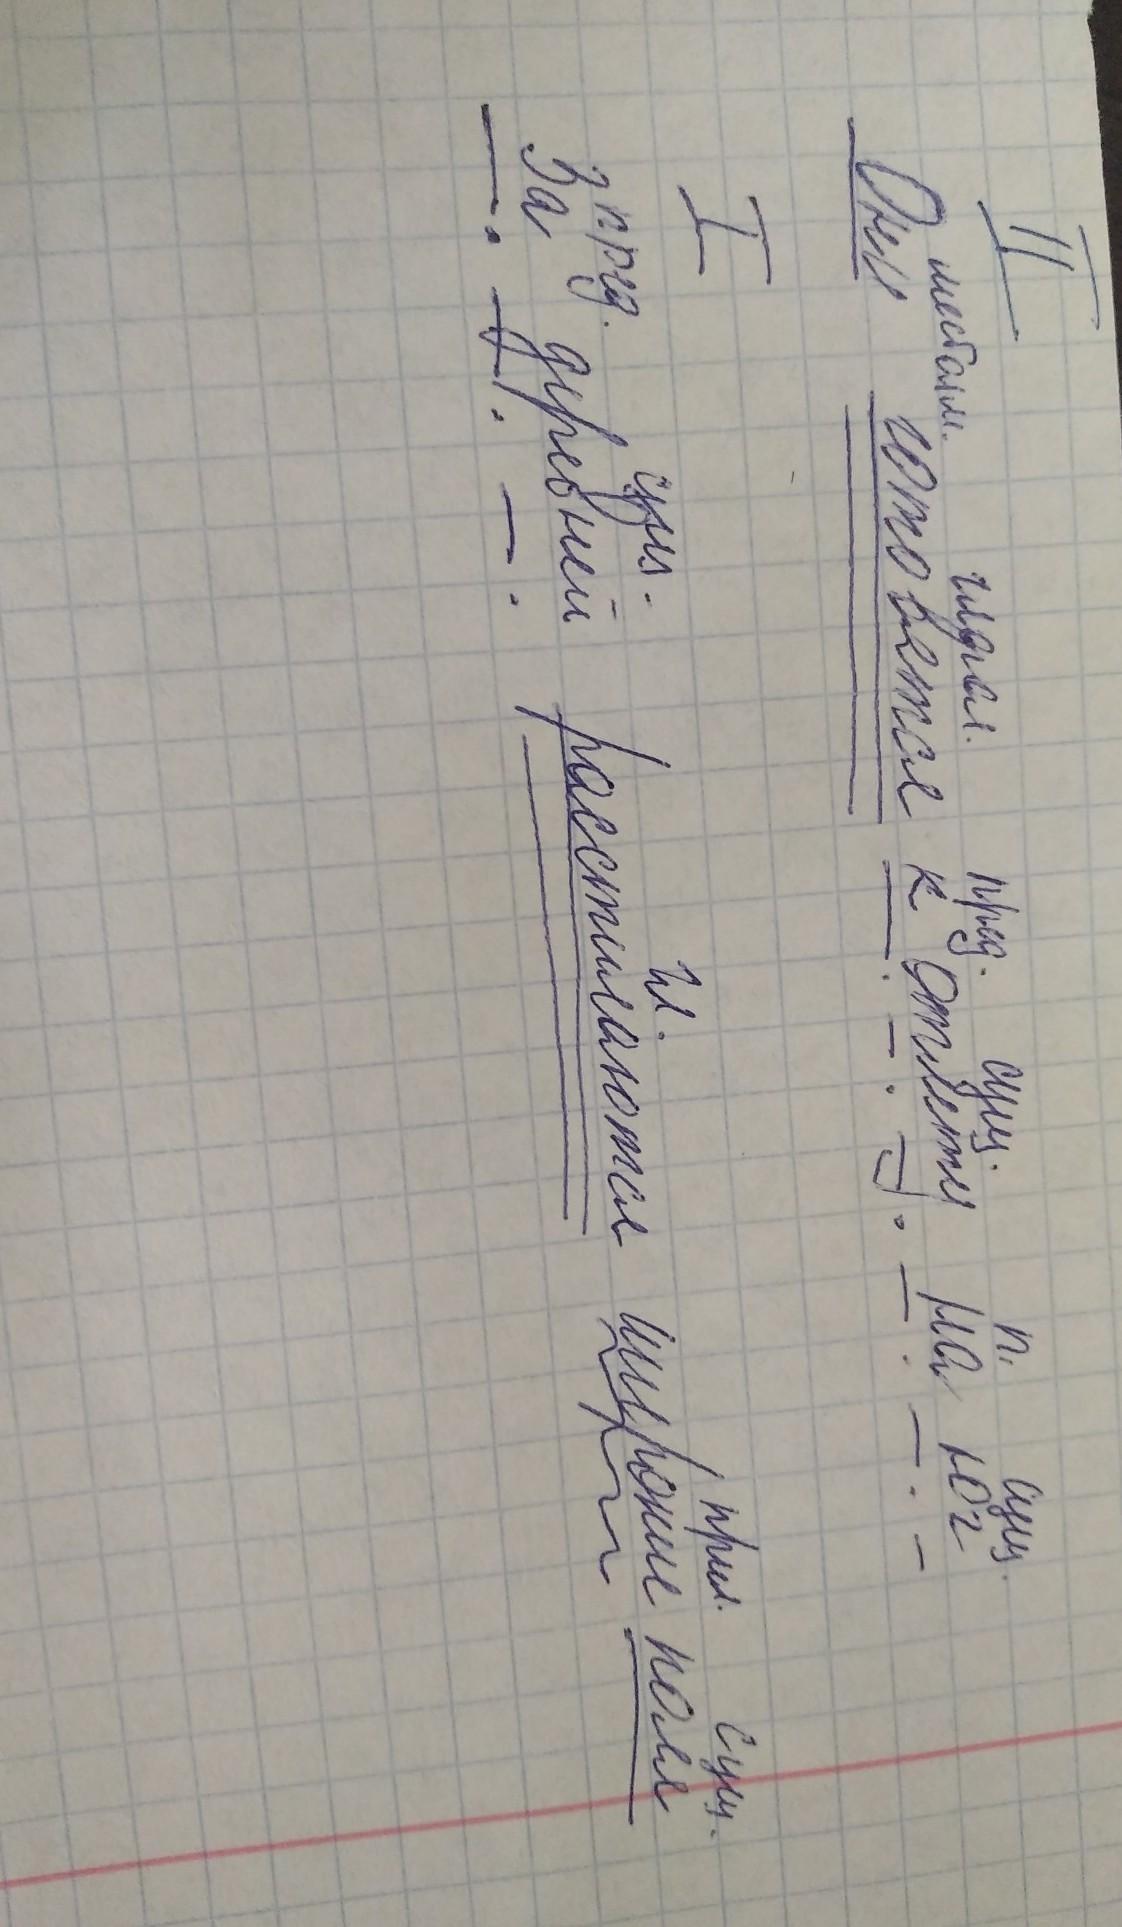 II
местоим. глагол. пред. сущ. п. сущ.
Они готовятся к отлету на юг
I
пред. сущ. гл. прил. сущ.
За деревней расстилаются широкие поля